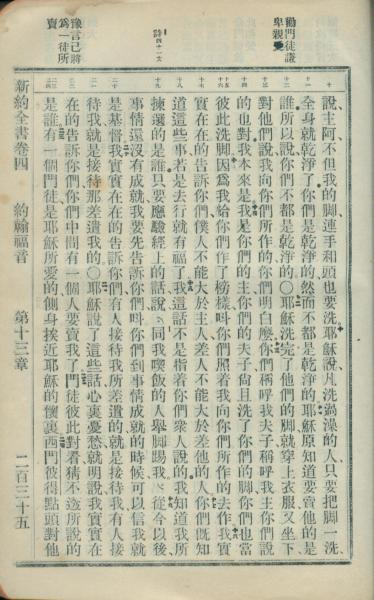 勸門徒謙
卑親愛
豫言已將
爲一徒所
賣
詩四十一又
說主阿不但我的脚連手和頭也要洗耶穌說凡洗過澡的人只要把脚一洗
全身就乾淨了你們是乾淨的然而不都是乾淨的耶穌原知道要賣他的是
誰所以說你們不都是乾淨的○耶穌洗完了他們的脚就穿上衣服又坐下
對他們說我向你們所作的你們明白麼你們稱呼我夫子稱呼我主你們說
的也對我本來是我是你們的主你們的夫子尙且洗了你們的脚你們也當
彼此洗脚因爲我給你們作了榜樣呌你們照着我向你們所作的去作我實
實在在的告訴你們僕人不能大於主人差人不能大於差他的人你們旣知
道這些事若是去行就有福了我這話不是指着你們衆人說的我知道我所
揀選的是誰只要應驗經上的話說同我喫飯的人舉脚踢我從今以後
事情還沒有成就我要先告訴你們呌你們到事情成就的時候可以信我就
是基督我實實在在的告訴你們有人接待我所差遣的就是接待我有人接
待我就是接待那差遣我的○耶穌說了這些話心裏憂愁就明說我實實在
在的告訴你們你們中間有一個人要賣我了門徒彼此對看猜不透所說的
是誰有一個門徒是耶穌所愛的側身挨近耶穌的懷裏西門彼得點頭對他
新約全書卷四　約翰福音　第十三章　二百三十五